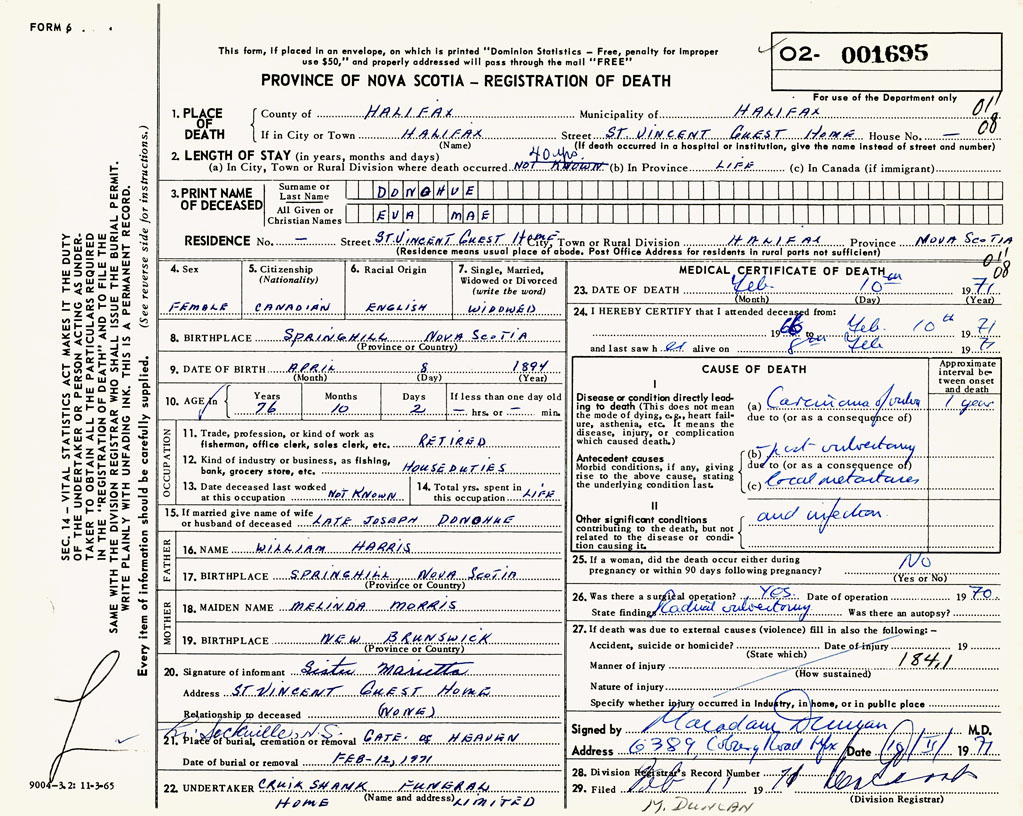 FORM 6
This form, if placed in an envelope, on which is printed "Dominion Statistics — Free, penalty for improper
use $50," and properly addressed will pass through the mail "FREE"
PROVINCE OF NOVA SCOTIA — REGISTRATION OF DEATH
02- 001695
For use of the Department only
011
08
1. PLACE OF DEATH
County of HALIFAX Municipality of HALIFAX
If in City or Town HALIFAX Street ST. VINCENT GUEST HOME House No. —
(Name) (If death occurred in a hospital or institution, give the name instead of street and number)
2. LENGTH OF STAY (in years, months and days) 40 yrs.
(a) In City, Town or Rural Division where death occurred NOT KNOWN (b) In Province LIFE (c) In Canada (if immigrant)
3. PRINT NAME OF DECEASED
Surname or Last Name DONOHUE
All Given or Christian Names EVA MAE
RESIDENCE No. — Street ST. VINCENT GUEST HOME City, Town or Rural Division HALIFAX Province NOVA SCOTIA
(Residence means usual place of abode. Post Office Address for residents in rural parts not sufficient)
011
08
4. Sex
FEMALE
5. Citizenship (Nationality)
CANADIAN
6. Racial Origin
ENGLISH
7. Single, Married, Widowed or Divorced (write the word)
WIDOWED
8. BIRTHPLACE SPRINGHILL NOVA SCOTIA
(Province or Country)
9. DATE OF BIRTH APRIL 8 1894
(Month) (Day) (Year)
10. AGE in Years Months Days If less than one day
76 10 2 — hrs. or — min.
OCCUPATION
11. Trade, profession, or kind of work as
fisherman, office clerk, sales clerk, etc. RETIRED
12. Kind of industry or business, as fishing,
bank, grocery store, etc. HOUSEDUTIES
13. Date deceased last worked at this occupation NOT KNOWN
14. Total yrs. spent in this occupation LIFE
15. If married give name of wife
or husband of deceased LATE JOSEPH DONOHUE
FATHER
16. NAME WILLIAM HARRIS
17. BIRTHPLACE SPRINGHILL NOVA SCOTIA
(Province or Country)
MOTHER
18. MAIDEN NAME MELINDA MORRIS
19. BIRTHPLACE NEW BRUNSWICK
(Province or Country)
20. Signature of informant Sister Marietta
Address ST VINCENT GUEST HOME
Relationship to deceased (NONE)
Sackville, N.S.
21. Place of burial, cremation or removal GATE OF HEAVEN
Date of burial or removal FEB-12, 1971
22. UNDERTAKER CRUIKSHANK FUNERAL
HOME (Name and address) LIMITED
MEDICAL CERTIFICATE OF DEATH
23. DATE OF DEATH Feb. 10th 1971
(Month) (Day) (Year)
24. I HEREBY CERTIFY that I attended deceased from:
1966 to Feb. 10th 1971
and last saw her alive on Feb 1971
CAUSE OF DEATH
Approximate interval between onset and death
I
Disease or condition directly leading to death (This does not mean
the mode of dying, e.g., heart failure, asthenia, etc. It means the
disease, injury, or complication
which caused death.)
(a) Carcinoma of vulva 1 year
due to (or as a consequence of)
Antecedent causes
Morbid conditions, if any, giving
rise to the above cause, stating
the underlying condition last.
(b) post vulvectomy
due to (or as a consequence of)
(c) local metastases
II
Other significant conditions
contributing to the death, but not
related to the disease or condition causing it.
and infection
25. If a woman, did the death occur either during
pregnancy or within 90 days following pregnancy? No
(Yes or No)
26. Was there a surgical operation? YES Date of operation 1970
State findings Radical vulvectomy Was there an autopsy?
27. If death was due to external causes (violence) fill in also the following: —
Accident, suicide or homicide? Date of injury 19
(State which)
Manner of injury 184,1
(How sustained)
Nature of injury
Specify whether injury occurred in industry, in home, or in public place
Signed by Macadam Duncan M.D.
Address 6389 Coburg Road Hfx Date 10/II/1971
28. Division Registrar's Record Number
29. Filed Feb 11 1971
(Division Registrar)
M. DUNCAN
SEC. 14 — VITAL STATISTICS ACT MAKES IT THE DUTY
OF THE UNDERTAKER OR PERSON ACTING AS UNDER-
TAKER TO OBTAIN ALL THE PARTICULARS REQUIRED
IN THE "REGISTRATION OF DEATH" AND TO FILE THE
SAME WITH THE DIVISION REGISTRAR WHO SHALL ISSUE THE BURIAL PERMIT.
WRITE PLAINLY WITH UNFADING INK. THIS IS A PERMANENT RECORD.
Every item of information should be carefully supplied. (See reverse side for instructions.)
9004-3.2: 11-3-65